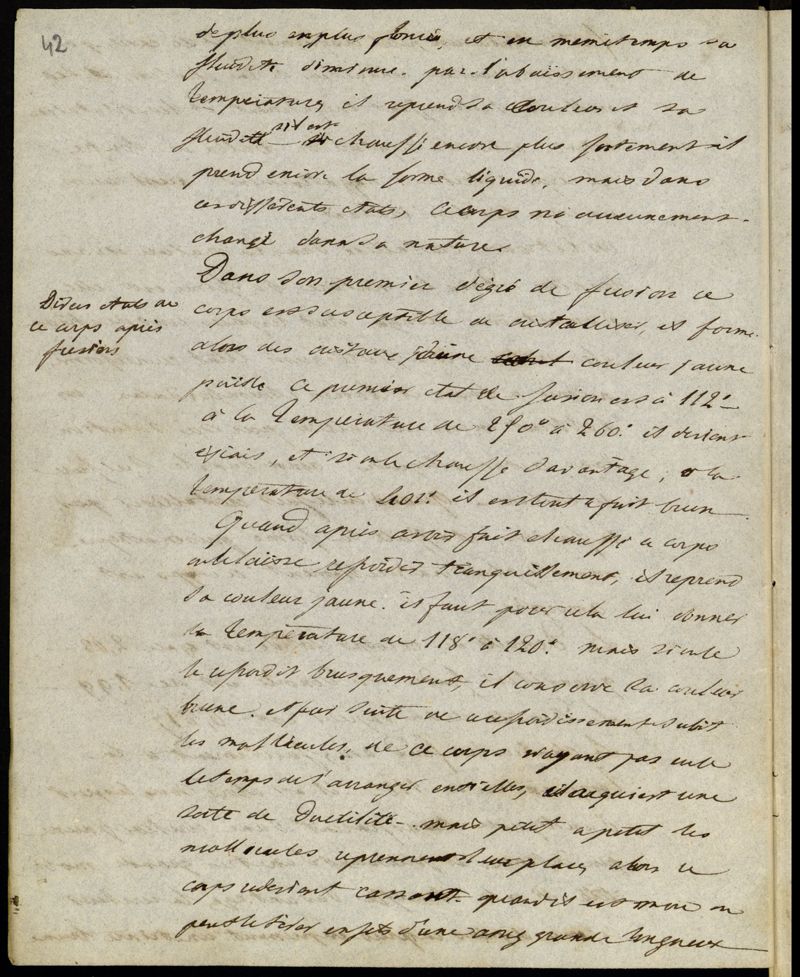 42
de plus en plus foncé, et en meme temps sa
fluidité diminue. par l'abaissement de
température, il reprend sa couleur et sa
fluidité s'il est chauffé encore plus fortement il
prend encore la forme liquide, mais dans
ces différents états, ce corps n'a aucunement
changé dans sa nature.
Divers états de
ce corps après
fusion
Dans son premier dégré de fusion ce
corps est susceptible de cristalliser, et forme
alors des cristaux d'une couleur jaune
paille ce premier état de fusion est à 112°
à la température de 250° à 260° il devient
épais, et si on le chauffe d'avantage, a la
température de 400° il est tout a fait brun
Quand après avoir fait chauffé ce corps
on le laisse refroidir tranquillement, il reprend
sa couleur jaune. il faut pour cela lui donner
la température de 118° à 120° mais si on le
refroidit brusquement, il conserve sa couleur
brune. et par suite de ce refroidissement subit
les mollécules, de ce corps n'ayant pas eu le
le temps de s'arranger entr'elles, il acquiert une
sorte de Ductilité. mais petit a petit les
mollécules reprennent leur place, alors ce
corps redevient cassant. quand il est mou on
peut le tirer en fils d'une assez grande longueur